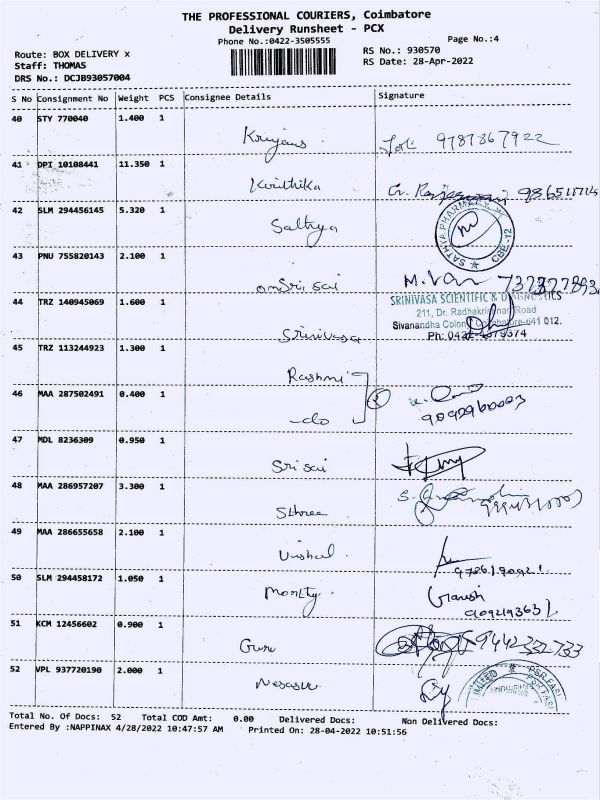 THE PROFESSIONAL COURIERS, Coimbatore
Delivery Runsheet - PCX
Phone No.:0422-3505555 Page No.:4
Route: BOX DELIVERY x RS No.: 930570
Staff: THOMAS RS Date: 28-Apr-2022
DRS No.: DCJB93057004
S No Consignment No Weight PCS Consignee Details Signature
40 STY 770040 1.400 1
9787867922
41 DPI 10108441 11.350 1
Krithika
42 SLM 294456145 5.320 1
Sathya
SATHYA PHARMACY
CBE-12
43 PNU 755820143 2.100 1
omSri sai
44 TRZ 140945069 1.600 1
SRINIVASA SCIENTIFIC & DIAGNOSTICS
211, Dr. Radhakrishnan Road
Sivanandha Colony Coimbatore-641 012.
Srinivasa
45 TRZ 113244923 1.300 1
Rashmi
46 MAA 287502491 0.400 1
do
47 MDL 8236309 0.950 1
Sri sai
48 MAA 286957207 3.300 1
Sthree
49 MAA 286655658 2.100 1
Vishal
50 SLM 294458172 1.050 1
Ganesh
51 KCM 12456602 0.900 1
Guru 9442332733
52 VPL 937720190 2.000 1
Total No. Of Docs: 52 Total COD Amt: 0.00 Delivered Docs: Non Delivered Docs:
Entered By :NAPPINAX 4/28/2022 10:47:57 AM Printed On: 28-04-2022 10:51:56